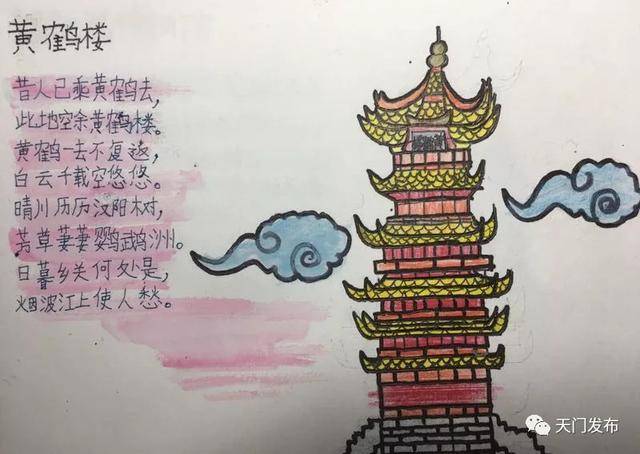 黄鹤楼
昔人已乘黄鹤去，
此地空余黄鹤楼。
黄鹤一去不复返，
白云千载空悠悠。
晴川历历汉阳树，
芳草萋萋鹦鹉洲。
日暮乡关何处是，
烟波江上使人愁。
天门发布